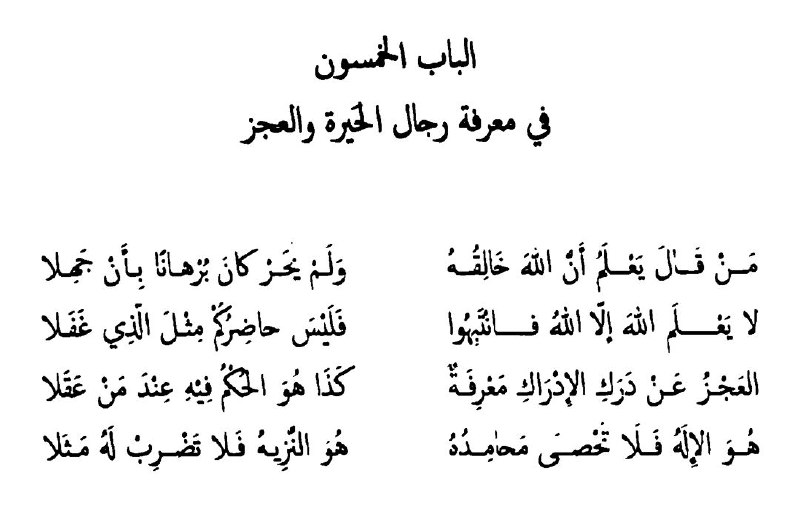 الباب الخمسون
في معرفة رجال الحَيرة والعجز
مَـنْ قَـالَ يَعْـلَمُ أَنَّ اللهَ خَالِقُـهُ وَلَمْ يَحَرْ كانَ بُرْهانًا بِأَنْ جَهِلا
لا يَعْـلَمِ اللهَ إلّا اللهُ فـانْتَبِهُوا فَلَيْسَ حاضِرُكُمْ مِثْلَ الَّذِي غَفَلا
العَجْزُ عَـنْ دَرَكِ الإِدْرَاكِ مَعْرِفَةٌ كَذَا هُوَ الحُكْمُ فِيْهِ عِنْدَ مَنْ عَقَلا
هُـوَ الإِلَهُ فَـلَا تُحْصـَى مَحامِـدُهُ هُوَ النَّزِيهُ فَلا تَضْرِبْ لَهُ مَثَلا